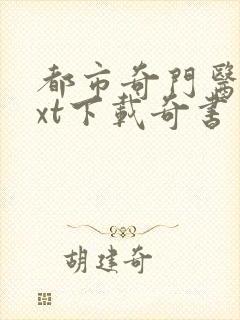 都市奇門醫
xt下載奇書
胡建奇